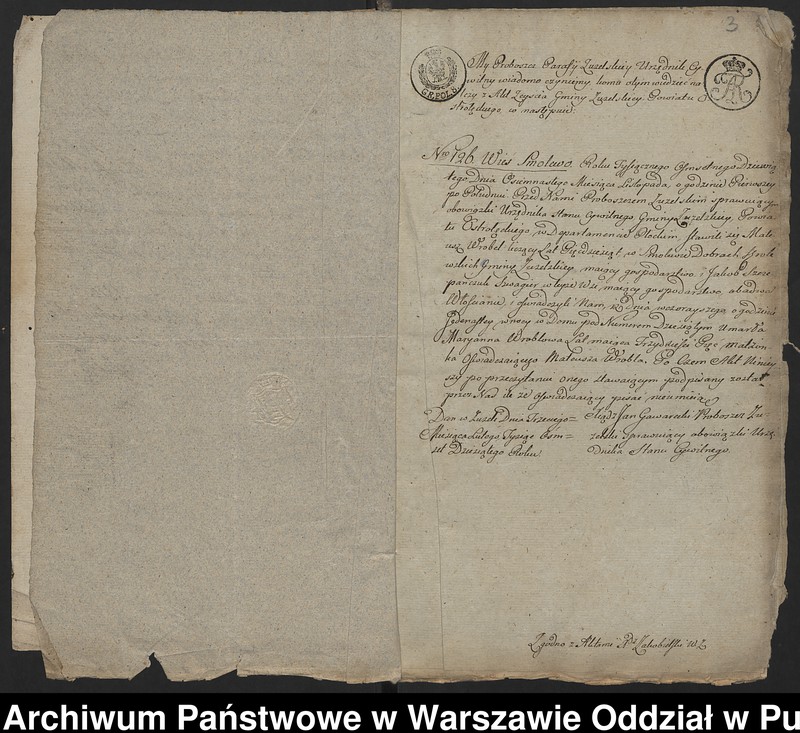 3
My Proboszcz Parafij Zuzelskiey Urzędnik Cy
wilny wiadomo czyniemy, komu otym wiedzieć na
leży z Akt Zeyscia Gminy Zuzelskiey Powiatu O
strołęckiego co następuie:
G.R.POL.S.
Nro 126. Wieś Smolewo. Roku Tysiącznego Osmsetnego Dziewią
tego Dnia Osiemnastego Miesiąca Listopada, o godzinie Pierwszey
po Południu Przed Nami Proboszczem Zuzelskim sprawuiącym
obowiązki Urzędnika Stanu Cywilnego Gminy Zuzelskiey, Powia
tu Ostrołęckiego, w Departamencie Płockim, stawili się Mate
usz Wrobel liczący Lat Pięćdziesiąt, w Smolewie Dobrach
Gminy Zuzelskiey, maiący gospodarstwo, i Jakob Szcze
pańczuk Szwagier wteyże Wsi, maiący gospodarstwo, obadwa
Włoscianie, i oswiadczyli Nam, iż Dnia wczorayszego o godzinie
Jedenastey, wnocy w Domu pod Numerem Dziesiątym Umarła
Maryanna Wroblowa Lat maiąca Trzydzieści Pięć małżon
ka Oswiadczaiącego Mateusza Wrobla. Po Czem Akt Niniey
szy po przeczytaniu onego stawaiącym podpisany został
przez Nas ile że Oswiadczaiący pisać nieumieią
Dan w Zuzeli Dnia Trzeciego
Miesiąca Lutego Tysiąc Osm=
set Dziesiątego Roku
Xiądz Jan Gawarecki Proboszcz Zu
zelski sprawuiący obowiązki Urzę
dnika Stanu Cywilnego.
Zgodno z Aktami
Archiwum Państwowe w Warszawie Oddział w Pu